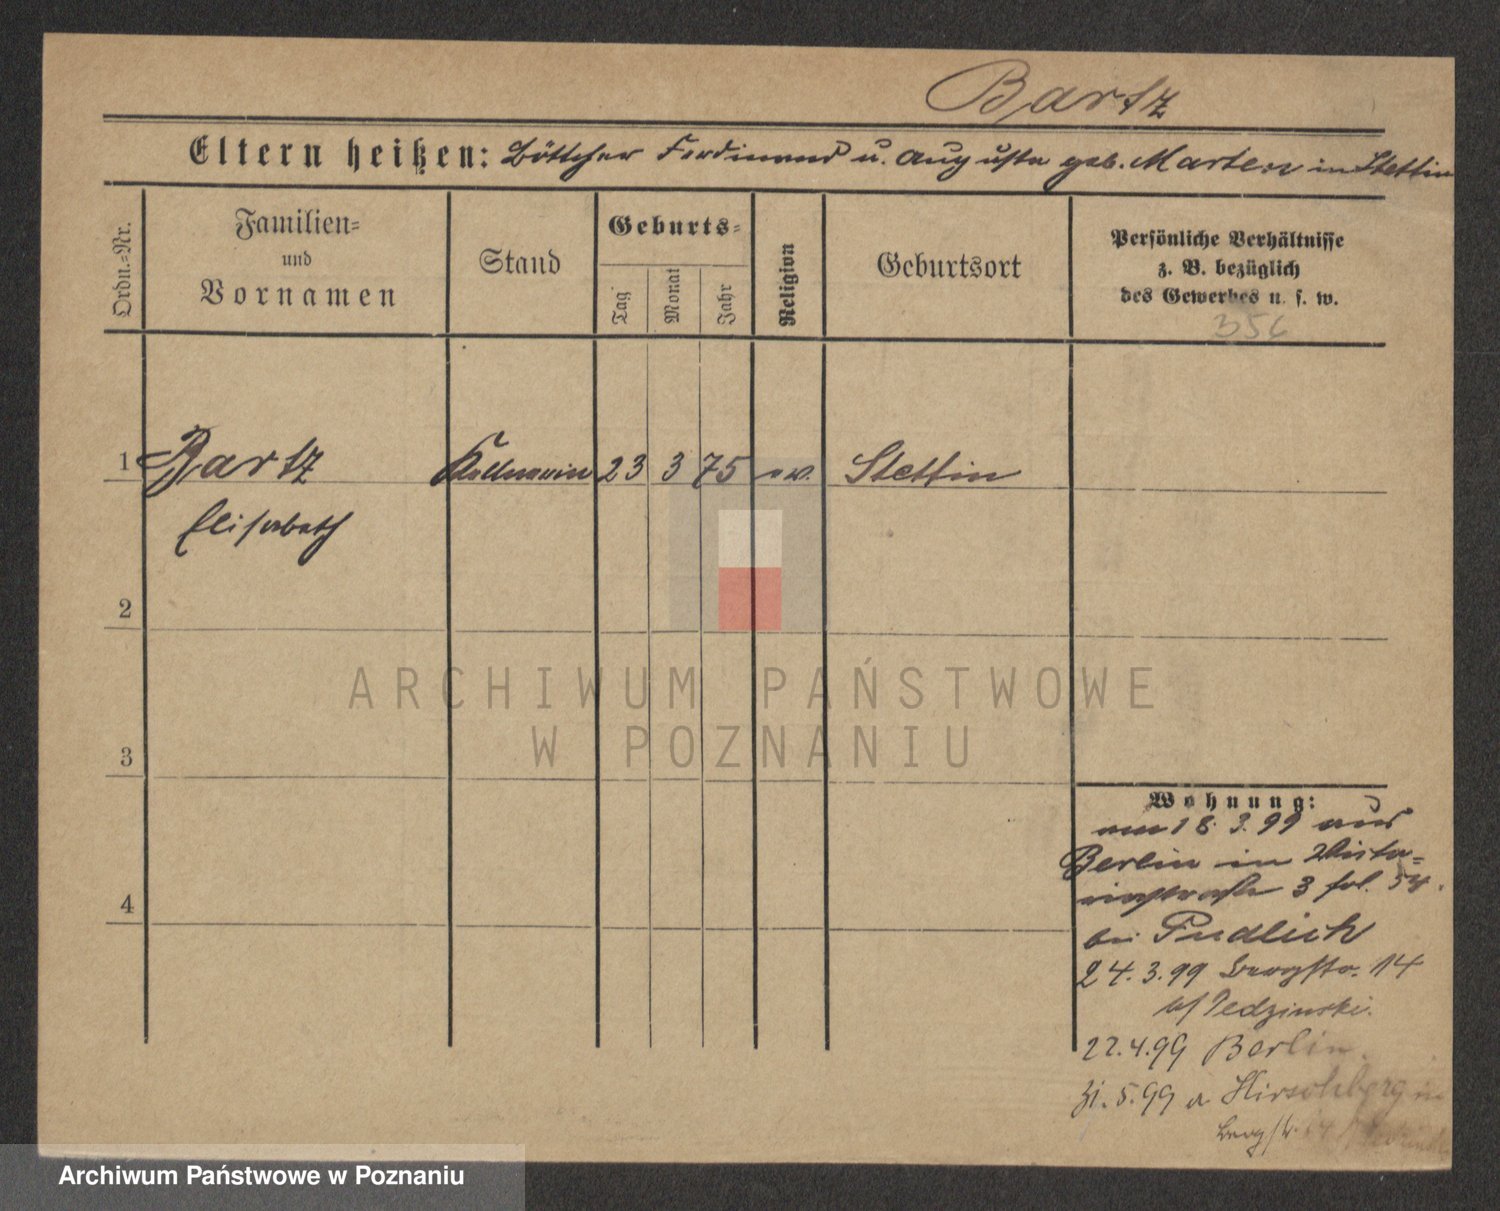 Bartz
Eltern heißen: Böttcher Ferdinand u. Auguste geb. Marten in Stettin
Ordn.-Nr.
Familien-
und
Vornamen
Stand
Geburts-
Tag
Monat
Jahr
Religion
Geburtsort
Persönliche Verhältnisse
z. B. bezüglich
des Gewerbes u. s. w.
356
1 Bartz Kellnerin 23 3 75 ev. Stettin
Elisabeth
2
3
4
Wohnung:
am 18. 3. 99 aus
Berlin in Victo-
riastraße 3 fol. 54.
bei Pudlich
24. 3. 99 Bergstr. 14
b/ Jedzinski.
22. 4. 99 Berlin.
31. 5. 99 a Hirschberg in
Bergstr. 14
ARCHIWUM PAŃSTWOWE
W POZNANIU
Archiwum Państwowe w Poznaniu